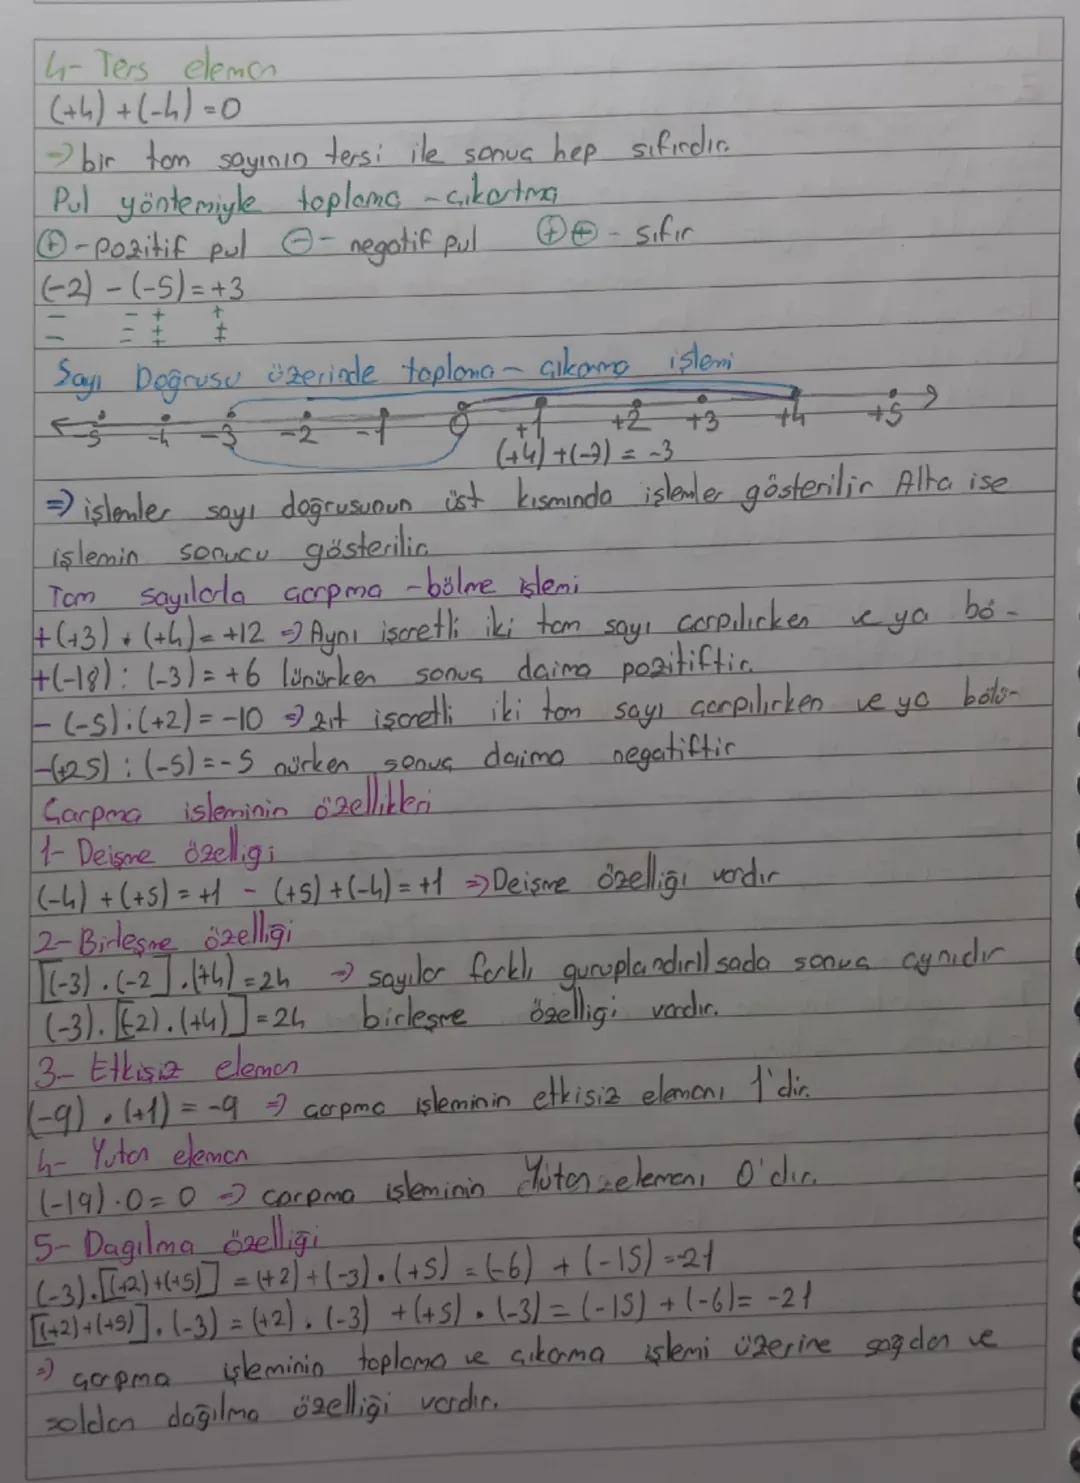 4- Ters eleman
(+4) + (-4) = 0
⇒ bir tam sayının tersi ile sonuç hep sıfırdır.
Pul yöntemiyle toplama - çıkartma
⊕ - pozitif pul ⊖ - negatif pul ⊕⊕ - sıfır
(-2) - (-5) = +3
- - + +
- = ‡ ‡
Sayı Doğrusu üzerinde toplama - çıkarma işlemi
-5 -4 -3 -2 -1 0 +1 +2 +3 +4 +5
(+4) + (-7) = -3
⇒ işlemler sayı doğrusunun üst kısmında işlemler gösterilir Alta ise
işlemin sonucu gösterilir
Tam sayılarla çarpma - bölme işlemi
+(+3) . (+4) = +12 ⇒ Aynı işaretli iki tam sayı çarpılırken ve ya bö-
+(-18) : (-3) = +6 lünürken sonuç daima pozitiftir.
- (-5) : (+2) = -10 ⇒ zıt işaretli iki tam sayı çarpılırken ve ya bölü-
-(+25) : (-5) = -5 nürken sonuç daima negatiftir
Çarpma işleminin özellikleri
1- Deişme özelligi
(-4) + (+5) = +1 - (+5) + (-4) = +1 ⇒ Deişme özelliği vardır
2- Birleşme özelliği
[(-3) . (-2] . (+4) = 24 ⇒ sayılar farklı guruplandırılsada sonuç aynıdır
(-3) . [(-2) . (+4)] = 24 birleşme özelligi vardır.
3- Etkisiz eleman
(-9) . (+1) = -9 ⇒ çarpma işleminin etkisiz elemanı 1'dir.
4- Yutan eleman
(-19) . 0 = 0 ⇒ çarpma işleminin Yutan elemanı 0'dır.
5- Dagılma özelliği
(-3) . [(+2) + (+5)] = (+2) + (-3) . (+5) = (-6) + (-15) = -21
[(+2) + (+5)] . (-3) = (+2) . (-3) + (+5) . (-3) = (-15) + (-6) = -21
⇒ çarpma işleminin toplama ve çıkarma işlemi üzerine sağdan ve
soldan dağılma özelliği vardır.